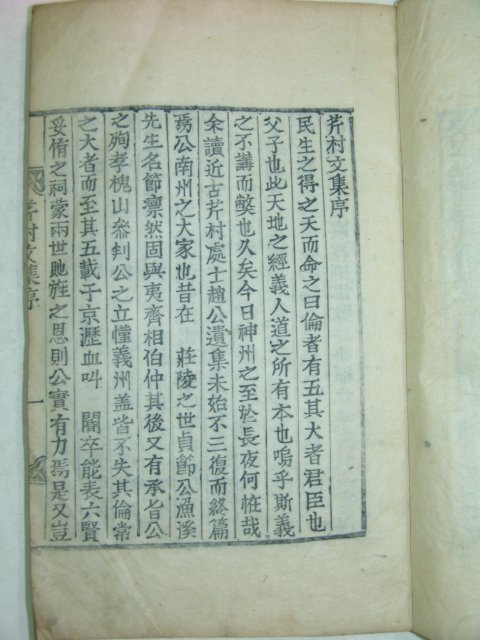 芹村文集序
民生之得之天而命之曰倫者有五其大者君臣也
父子也此天地之經義人道之所有本也嗚乎斯義
之不講而斁也久矣今日神州之至於長夜何恠哉
余讀近古芹村處士趙公遺集未始不三復而終篇
焉公南州之大家也昔在 莊陵之世貞節公漁溪
先生名節凛然固與夷齊相伯仲其後又有承旨公
之殉孝槐山叅判公之立慬義州盖皆不失其倫常
之大者而至其五載于京瀝血叫 閽卒能表六賢
妥侑之祠蒙兩世貤旌之恩則公實有力焉是又豈
芹村文集序
一